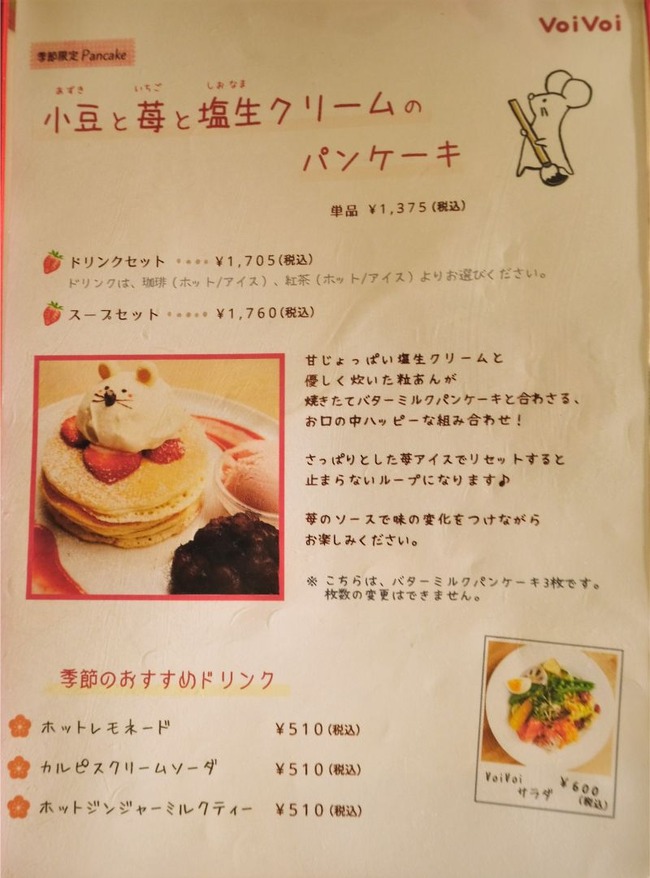 VoiVoi
季節限定 Pancake
あずき いちご しおなま
小豆と苺と塩生クリームの
パンケーキ
単品 ¥1,375(税込)
ドリンクセット ・・・・ ¥1,705(税込)
ドリンクは、珈琲（ホット/アイス）、紅茶（ホット/アイス）よりお選びください。
スープセット ・・・・・ ¥1,760(税込)
甘じょっぱい塩生クリームと
優しく炊いた粒あんが
焼きたてバターミルクパンケーキと合わさる、
お口の中ハッピーな組み合わせ！
さっぱりとした苺アイスでリセットすると
止まらないループになります♪
苺のソースで味の変化をつけながら
お楽しみください。
※ こちらは、バターミルクパンケーキ3枚です。
枚数の変更はできません。
季節のおすすめドリンク
ホットレモネード ¥510(税込)
カルピスクリームソーダ ¥510(税込)
ホットジンジャーミルクティー ¥510(税込)
VoiVoi
サラダ
¥600
(税込)